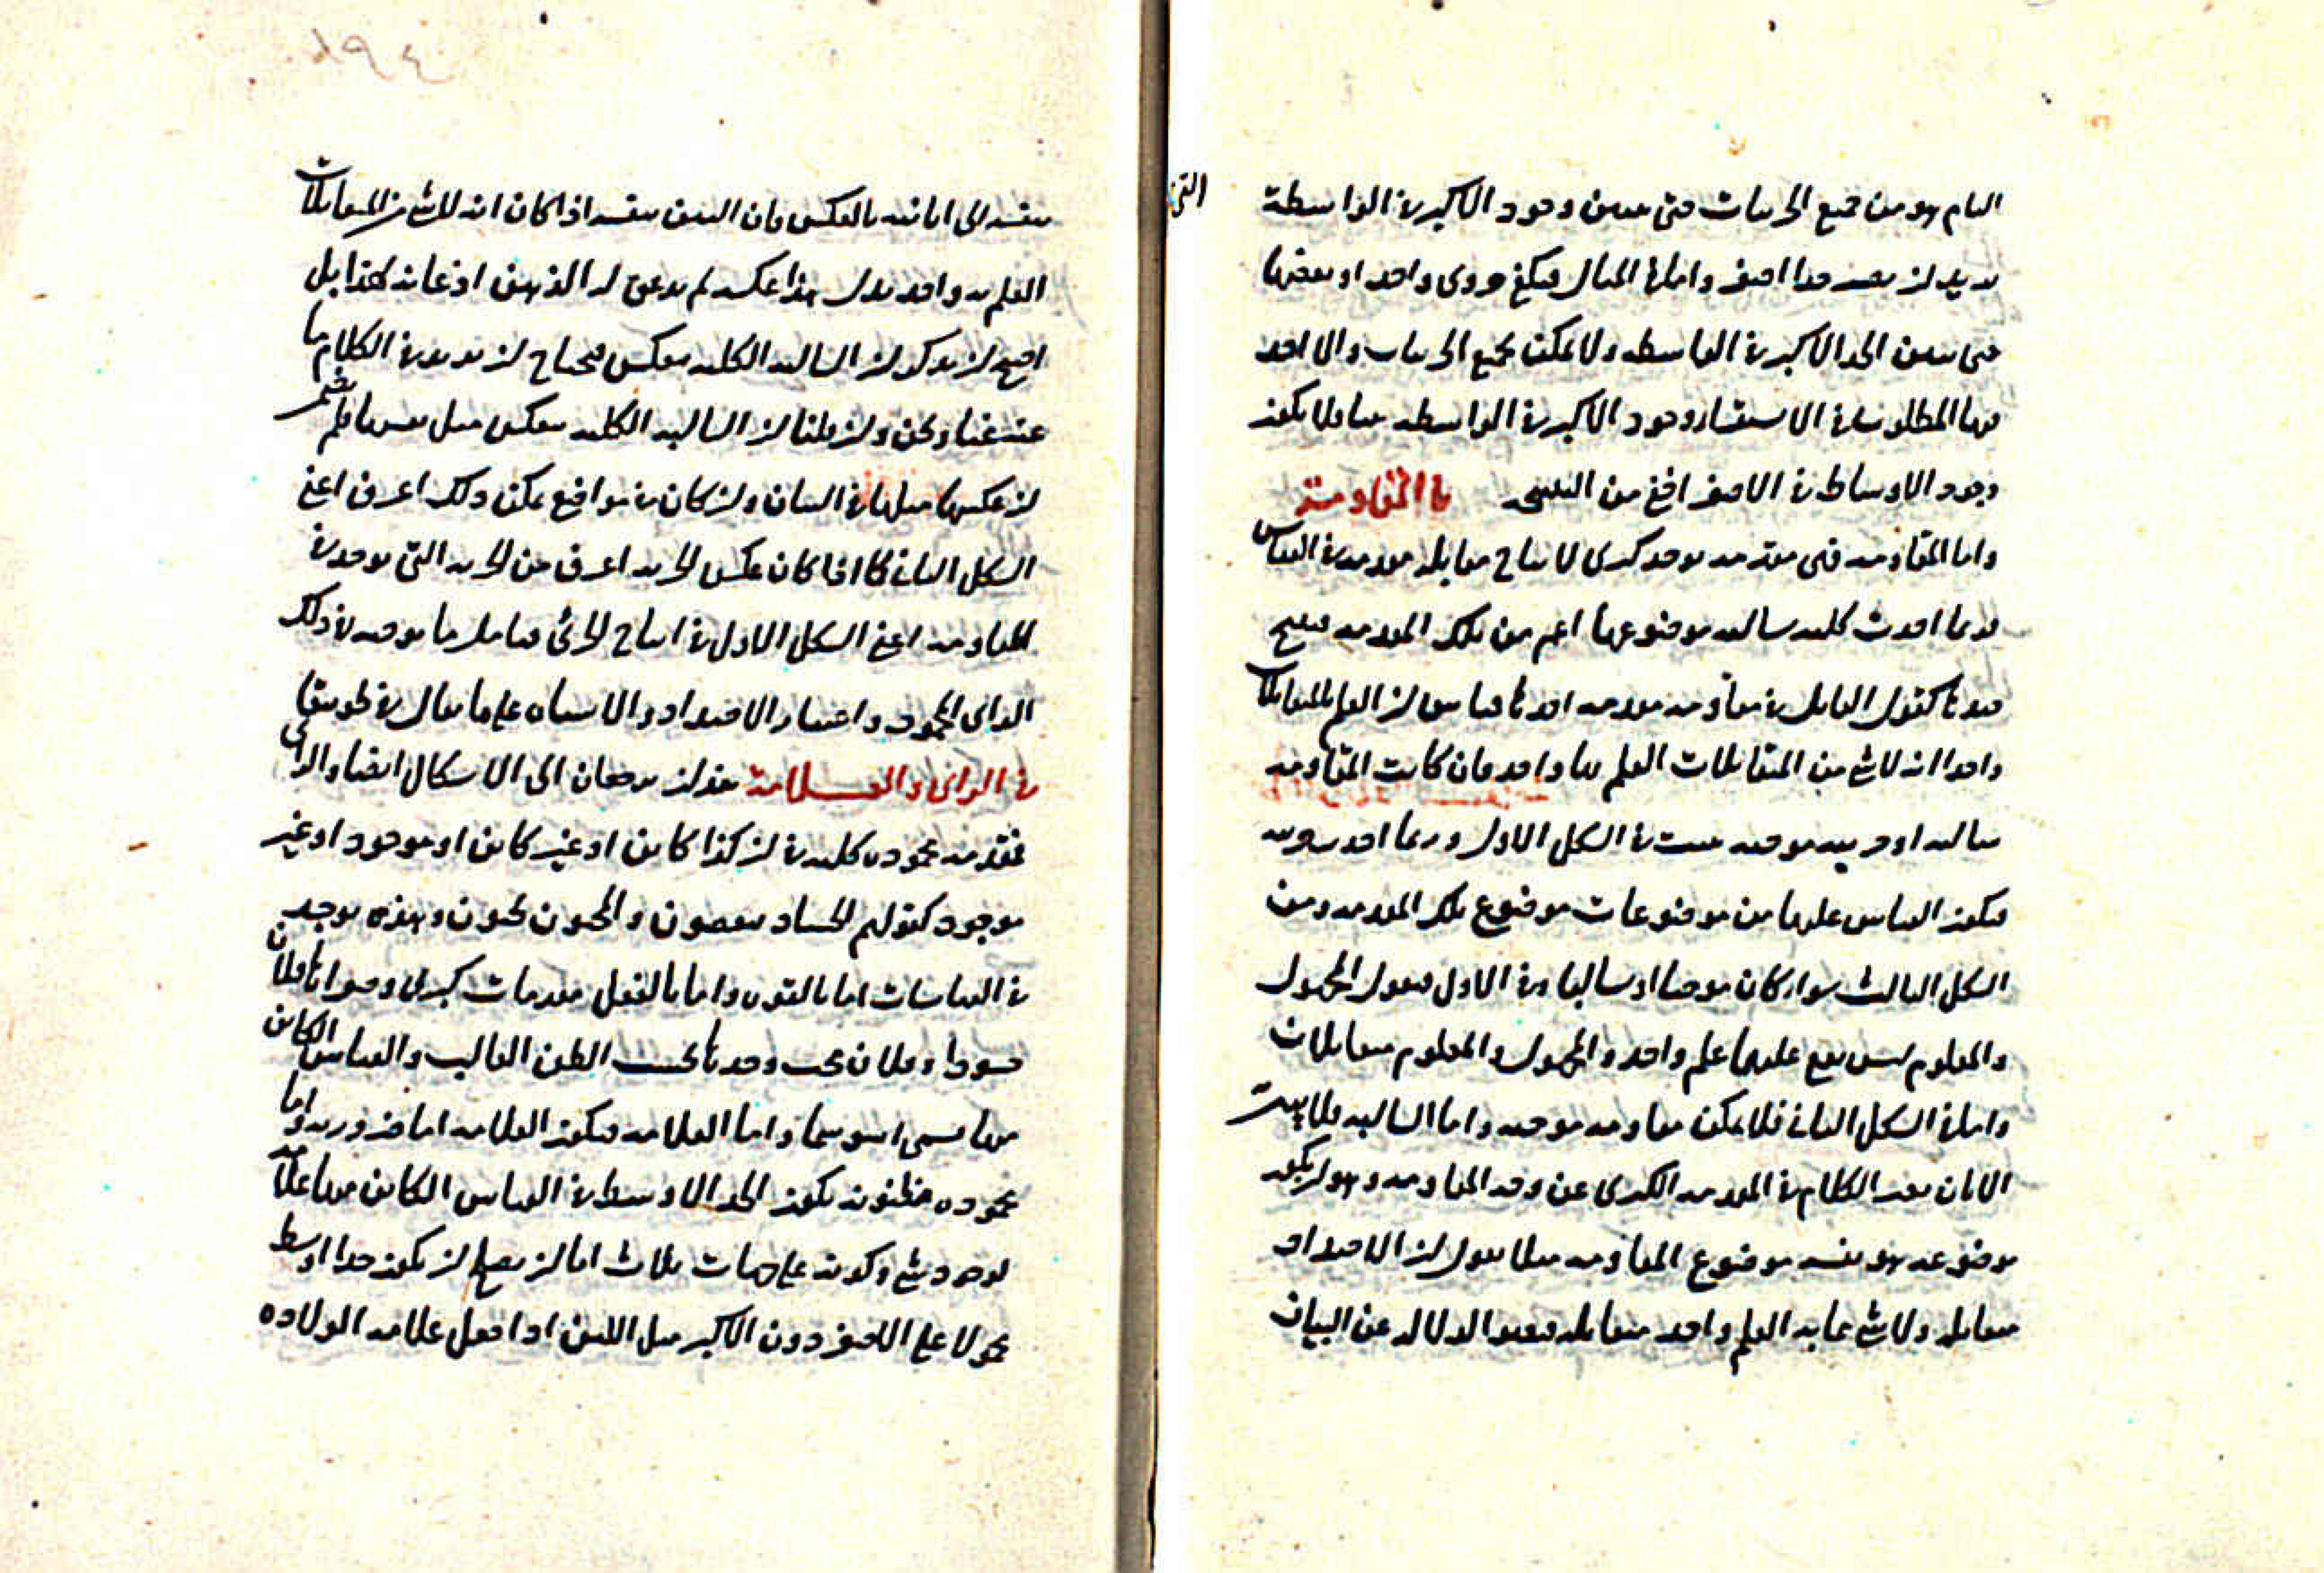 التام هو من جميع الجزئيات حتى يتبين وجود الاكبر في الواسطة التي
يريد ان يصير حدا اصغر واما في المثال فيكفي جزوى واحد او بعضها
حتى يتبين الحد الاكبر في الواسطه ولا يمكن جميع الجزئيات والا احد
منها المطلوب وفي الاستقراء وجود الاكبر في الواسطه بينا ولا يكون
وجود الاوساط في الاصغر اخفى من النتيجه في المقاومة
واما المقاومه فهي مقدمه توخذ كبرى لانتاج مقابله مقدمه في القياس
وربما اخذت كليه سالبه موضوعها اعم من تلك المقدمه فينتج
ضدها كقول القايل في مقاومه مقدمه اخذها قياس ان العلم بالمتقابلات
واحد انه لا شي من المتقابلات العلم بها واحد فان كانت المقاومه
سالبه او جزئيه موجبه بينت في الشكل الاول وربما اخذت جزئيه
فيكون القياس عليها من موضوعات موضوع تلك المقدمه ومن
الشكل الثالث سواء كان موجبا او سالبا وفي الاول فيقول المجهول
والمعلوم ليس يقع عليهما علم واحد والمجهول والمعلوم متقابلات
واما في الشكل الثاني فلا يمكن مقاومه موجبه واما السالبه فلا يثبت
الا بان يغير الكلام في المقدمه الكبرى عن وجه المقاومه وهو ان يكون
موضوعه هو نفسه موضوع المقاومه مثلا يقول ان الاضداد
متقابله ولا شي مما به العلم واحد متقابله فيغير الدلاله عن البيان
٥٩٤
نفسه الى ابانته بالعكس وان البين نفسه اذا كان انه لا شي من المتقابلات
العلم به واحد بدل هذا عكسه لم يدعن له الذهن اذعانه لهذا بل
احتج ان يذكر ان السالبه الكليه تنعكس فيحتاج ان يزيد في الكلام ما
عنه غنا ونحن وان قلنا ان السالبه الكليه تنعكس مثل نفسها فلم نضمر
ان عكسها مثلها في البيان وان كان في مواضع يمكن ذلك اعرف اعني
الشكل الثاني كما اذا كان عكس الجزيه اعرف من الجزيه التي توجد في
المقاومه اعني الشكل الاول في انتاج الجزئي فتامل ما يوجبه في ذلك
الراى المحمود واعتبار الاضداد والاشباه على ما يقال في طوبيقا
في الراى والعلامة هذان يرجعان الى الاشكال ايضا والراى
مقدمه محموده كليه في ان كذا كاين او غير كاين او موجود او غير
موجود كقولهم الحساد يبغضون والمحبون يحبون وهذه توجد
في القياسات اما بالقوه واما بالفعل مقدمات كبرى وصغراها فلان
حسود او فلان محب وحدها بحسب الظن الغالب والقياس الكاين
منها يسمى اسوسيما واما العلامه فيكون العلامه اما ضروريه واما
محموده مظنونه يكون الحد الاوسط في القياس الكاين منها علامه
لوجود شي وكونه على جهات ثلاث اما ان يصلح ان يكون حدا اوسط
محمولا على الاصغر دون الاكبر مثل اللبن اذا جعل علامه الولاده